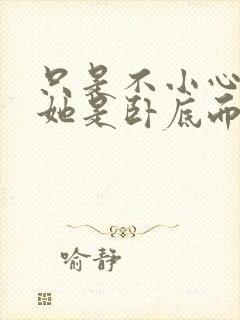 只是不小心
她是卧底而
喻静